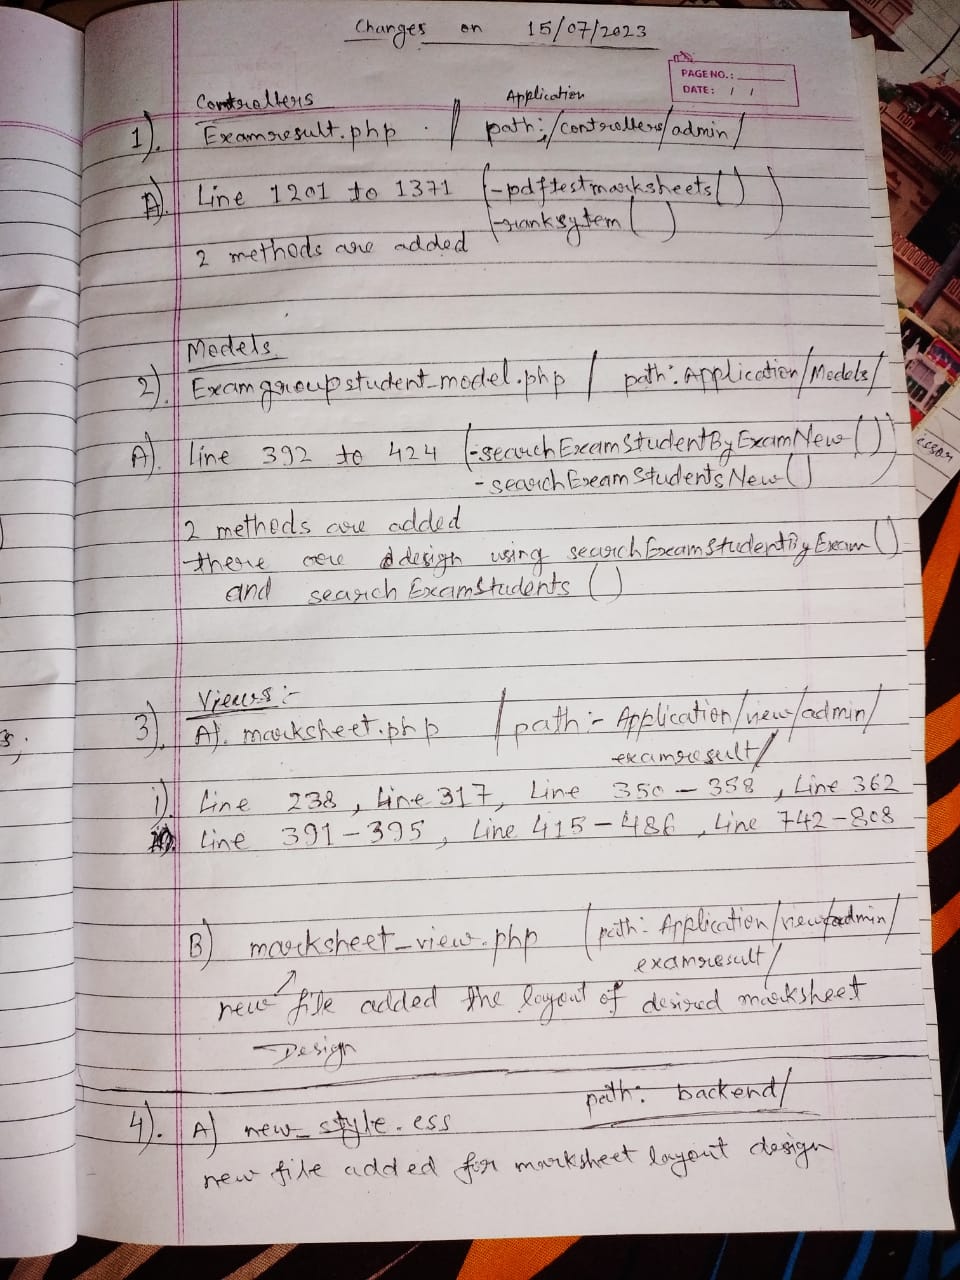 Changes on 15/07/2023
PAGE NO.:
DATE: / /
Controllers
Application
1). Examresult.php / path:/controllers/admin/
A). Line 1201 to 1371 (-pdftestmarksheets()
-ranksytem() )
2 methods are added
Models
2). Examgroupstudent_model.php / path: Application/Models/
A). line 392 to 424 (-searchExamStudentByExamNew()
- searchExamStudentsNew() )
2 methods are added
there are design using searchExamStudentByExam()
and searchExamStudents ()
Views :-
3). A). marksheet.php / path :- Application/view/admin/
examresult/
i). Line 238, Line 317, Line 350 - 358, Line 362
Line 391-395, Line 415-486, Line 742-808
B) marksheet_view.php (path: Application/view/admin/
examresult/
new file added the layout of desired marksheet
Design
4). A) new_style.css path: backend/
new file added for marksheet layout design